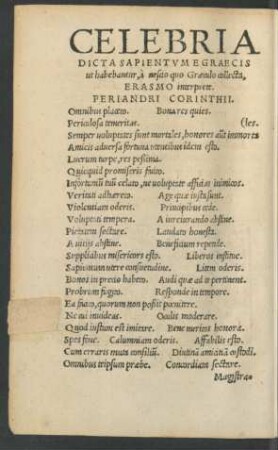 CELEBRIA
DICTA SAPIENTVM E GRAECIS
ut habebantur, à nescio quo Græculo collecta,
ERASMO interprete.
PERIANDRI CORINTHII.
Omnibus placeto. Bona res quies.
Periculosa temeritas. (les.
Semper uoluptates sunt mortales, honores aūt immorta
Amicis aduersa fortuna utentibus idem esto.
Lucrum turpe, res pessima.
Quicquid promiseris facito.
Infortuniū tuū celato, ne uoluptate afficias inimicos.
Veritati adhæreto. Age quæ iusta sunt.
Violentiam oderis. Principibus cede.
Voluptati tempera. A iureiurando abstine.
Pietatem sectare. Laudato honesta.
A uitijs abstine. Beneficium repende.
Supplicibus misericors esto. Liberos institue.
Sapientum utere consuetudine. Litem oderis.
Bonos in precio habeto. Audi quæ ad te pertinent.
Probrum fugito. Responde in tempore.
Ea facito, quorum non possit pœnitere.
Ne cui inuideas. Oculis moderare.
Quod iustum est imitare. Bene meritos honora.
Spes foue. Calumniam oderis. Affabilis esto.
Cum erraris muta consiliū. Diutinā amicitiā custodi.
Omnibus teipsum præbe. Concordiam sectare.
Magistra-